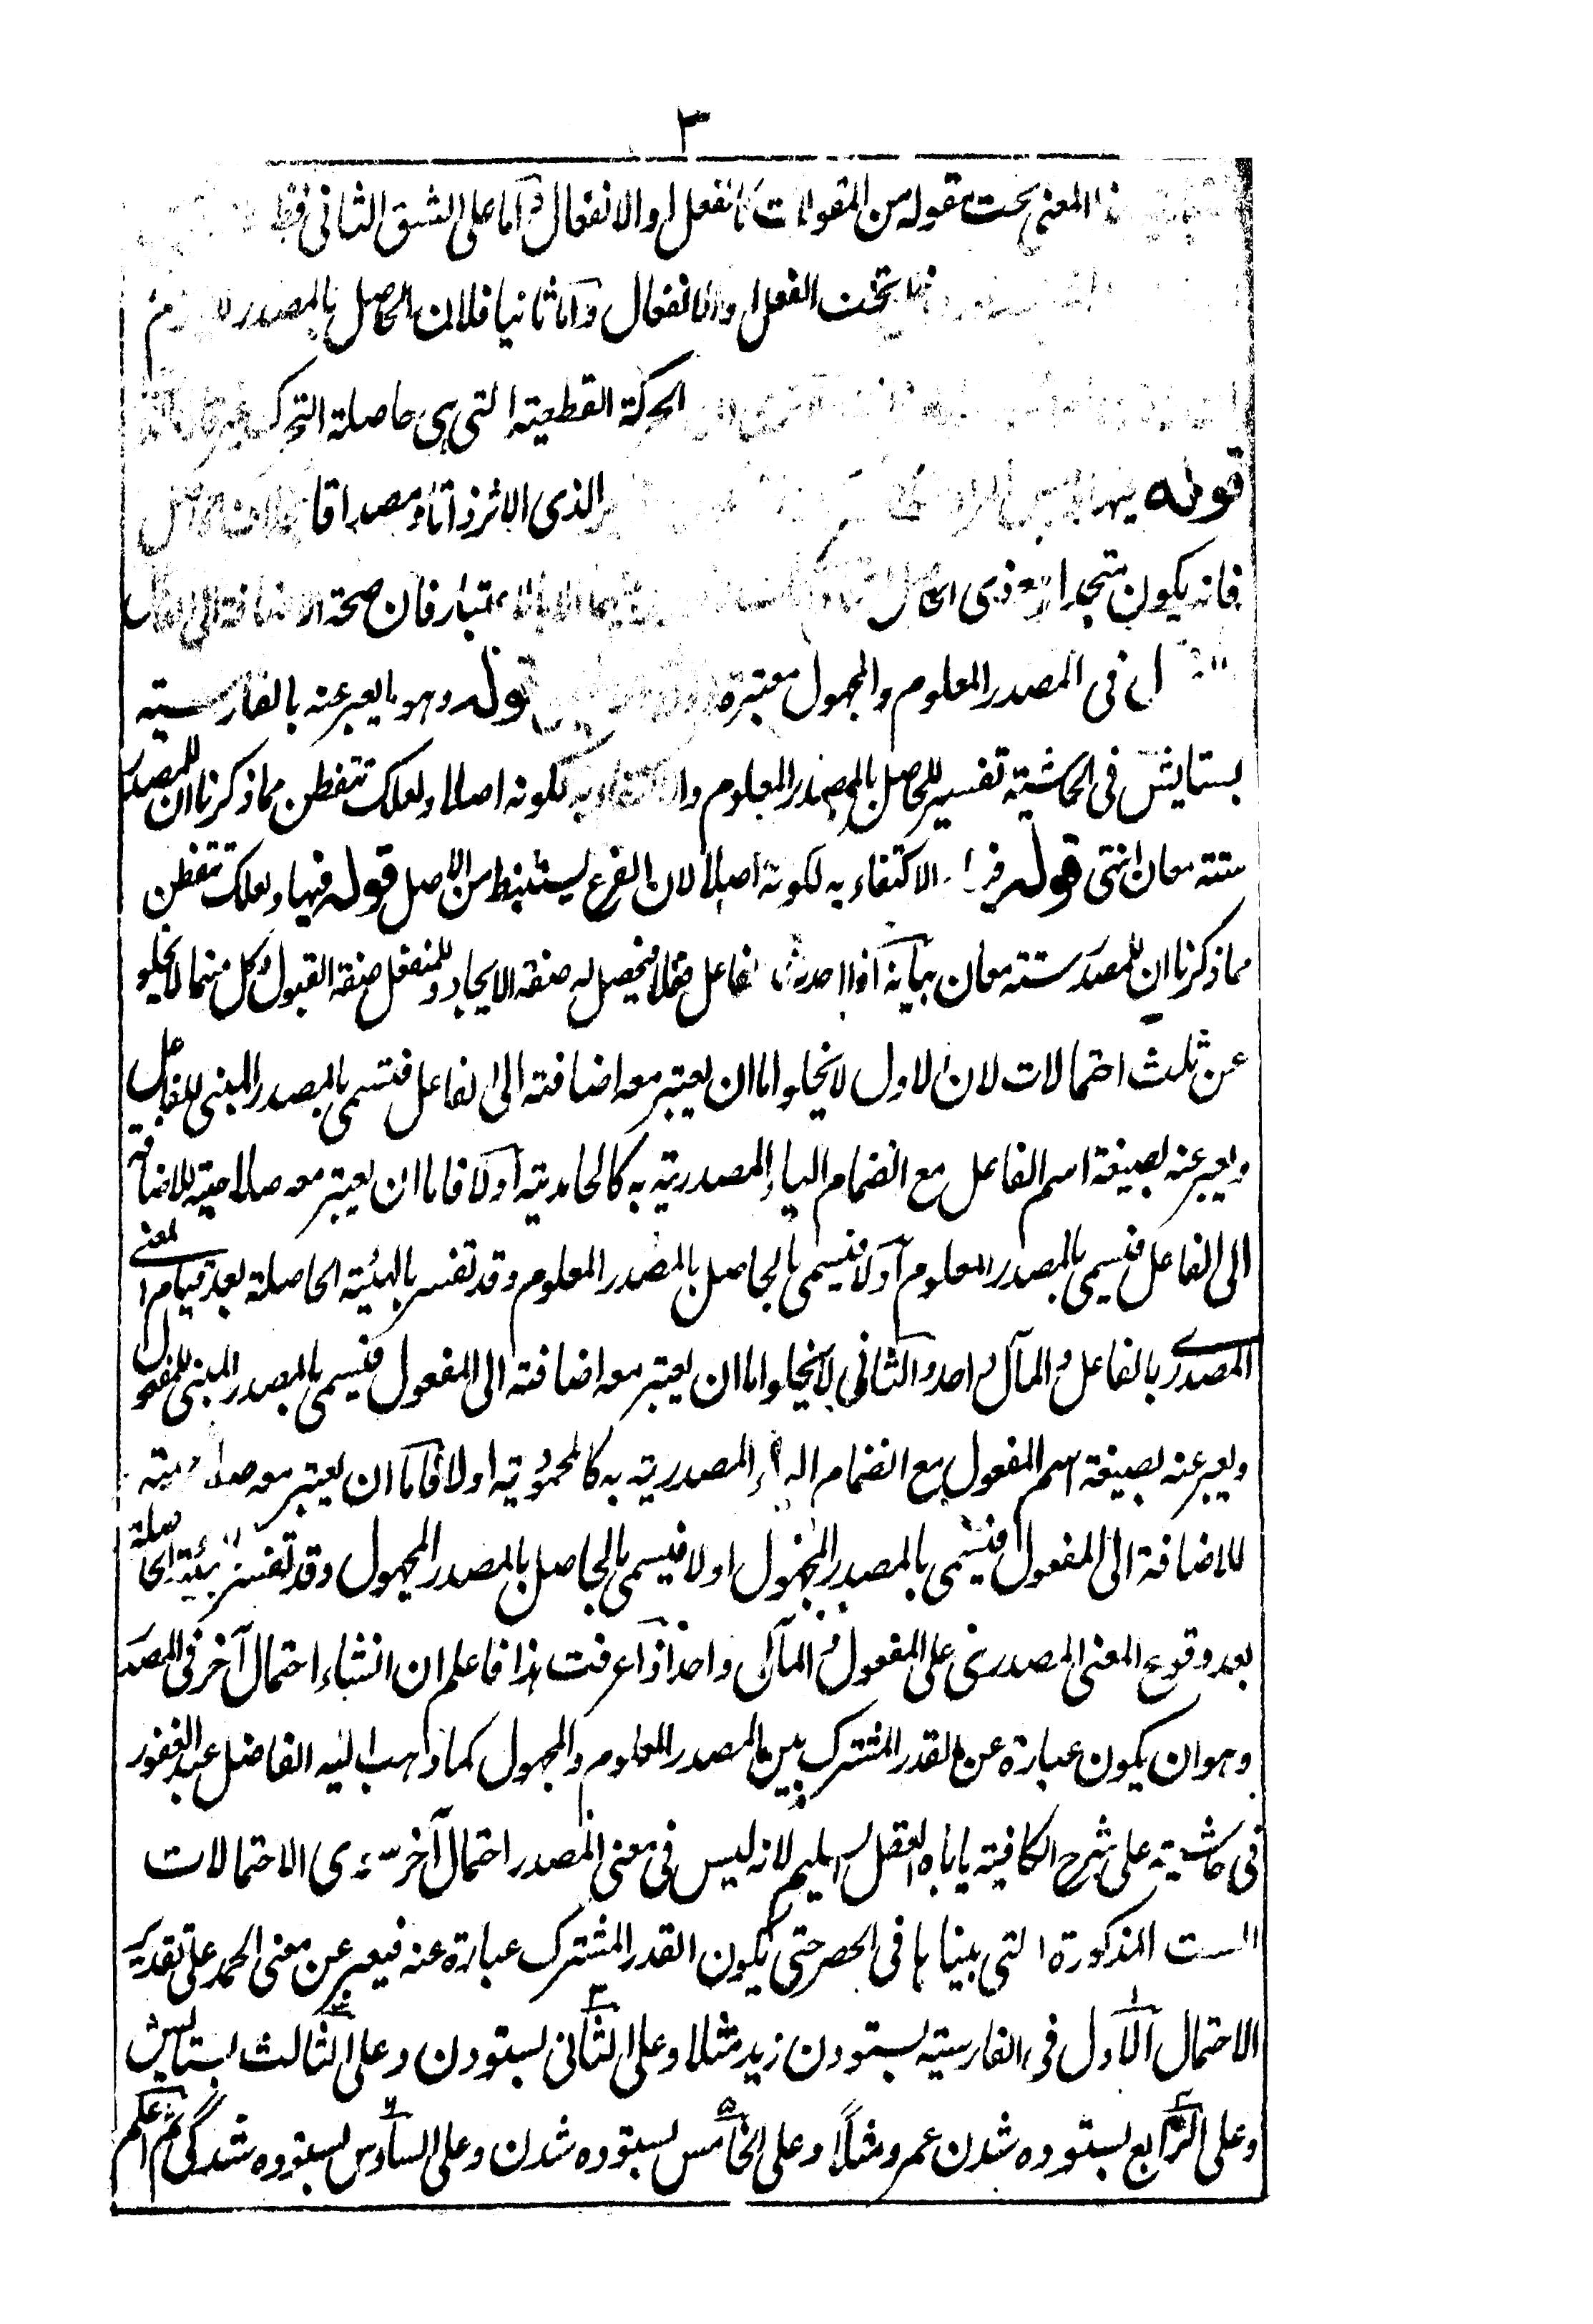 ٣
المعنى تحت مقولة من المقولات كالفعل والانفعال واما على الشق الثانى
تحت الفعل والانفعال واما ثانيا فلان الحاصل بالمصدر
الحركة القطعية التى هى حاصلة التحرك
قوله فيها الذى الاثر ذاتا ومصداقا
فانه يكون الا بالاعتبار فان صحة الاضافة الى
فى المصدر المعلوم والمجهول معتبرة قوله وهو ما يعبر عنه بالفارسية
بستايش فى الحاشية تفسير للحاصل بالمصدر المعلوم والاكتفاء به لكونه اصلا ولعلك تتفطن مما ذكرنا ان للمصدر
ستة معان انتهى قوله فيها الاكتفاء به لكونه اصلا لان الفرع يستنبط من الاصل قوله فيها ولعلك تتفطن
مما ذكرنا ان للمصدر ستة معان بيانه اذا صدر الفاعل فعلا فيحصل له صفة الايجاد وللمنفعل صفة القبول وكل منهما لا يخلو
عن ثلث احتمالات لان الاول لا يخلو اما ان يعتبر معه اضافته الى الفاعل فتسمى بالمصدر المبنى للفاعل
ويعبر عنه بصيغة اسم الفاعل مع انضمام الياء المصدرية به كالحامدية اولا فاما ان يعتبر معه صلاحية للاضافة
الى الفاعل فيسمى بالمصدر المعلوم اولا فيسمى بالحاصل بالمصدر المعلوم وقد تفسر بالهيئة الحاصلة بعد قيام المعنى
المصدرى بالفاعل والمآل واحد والثانى لا يخلو اما ان يعتبر معه اضافته الى المفعول فيسمى بالمصدر المبنى للمفعول
ويعبر عنه بصيغة اسم المفعول مع انضمام الياء المصدرية به كالمحمودية اولا فاما ان يعتبر معه صلاحيته
للاضافة الى المفعول فيسمى بالمصدر المجهول اولا فيسمى بالحاصل بالمصدر المجهول وقد تفسر بهيئة الحاصلة
بعد وقوع المعنى المصدرى على المفعول والمآل واحد اذا عرفت هذا فاعلم ان انشاء احتمال آخر فى المصدر
وهو ان يكون عبارة عن القدر المشترك بين المصدر المعلوم والمجهول كما ذهب اليه الفاضل عبد الغفور
فى حاشيته على شرح الكافية ياباه العقل السليم لانه ليس فى معنى المصدر احتمال آخر سوى الاحتمالات
الست المذكورة التى بيناها فى الحصر حتى يكون القدر المشترك عبارة عنه فيعبر عن معنى الحمد على تقدير
الاحتمال الاول فى الفارسية بستودن زيد مثلا وعلى الثانى بستودن وعلى الثالث بستايش
وعلى الرابع بستوده شدن عمرو مثلا وعلى الخامس بستوده شدن وعلى السادس بستوده شدگى ثم اعلم